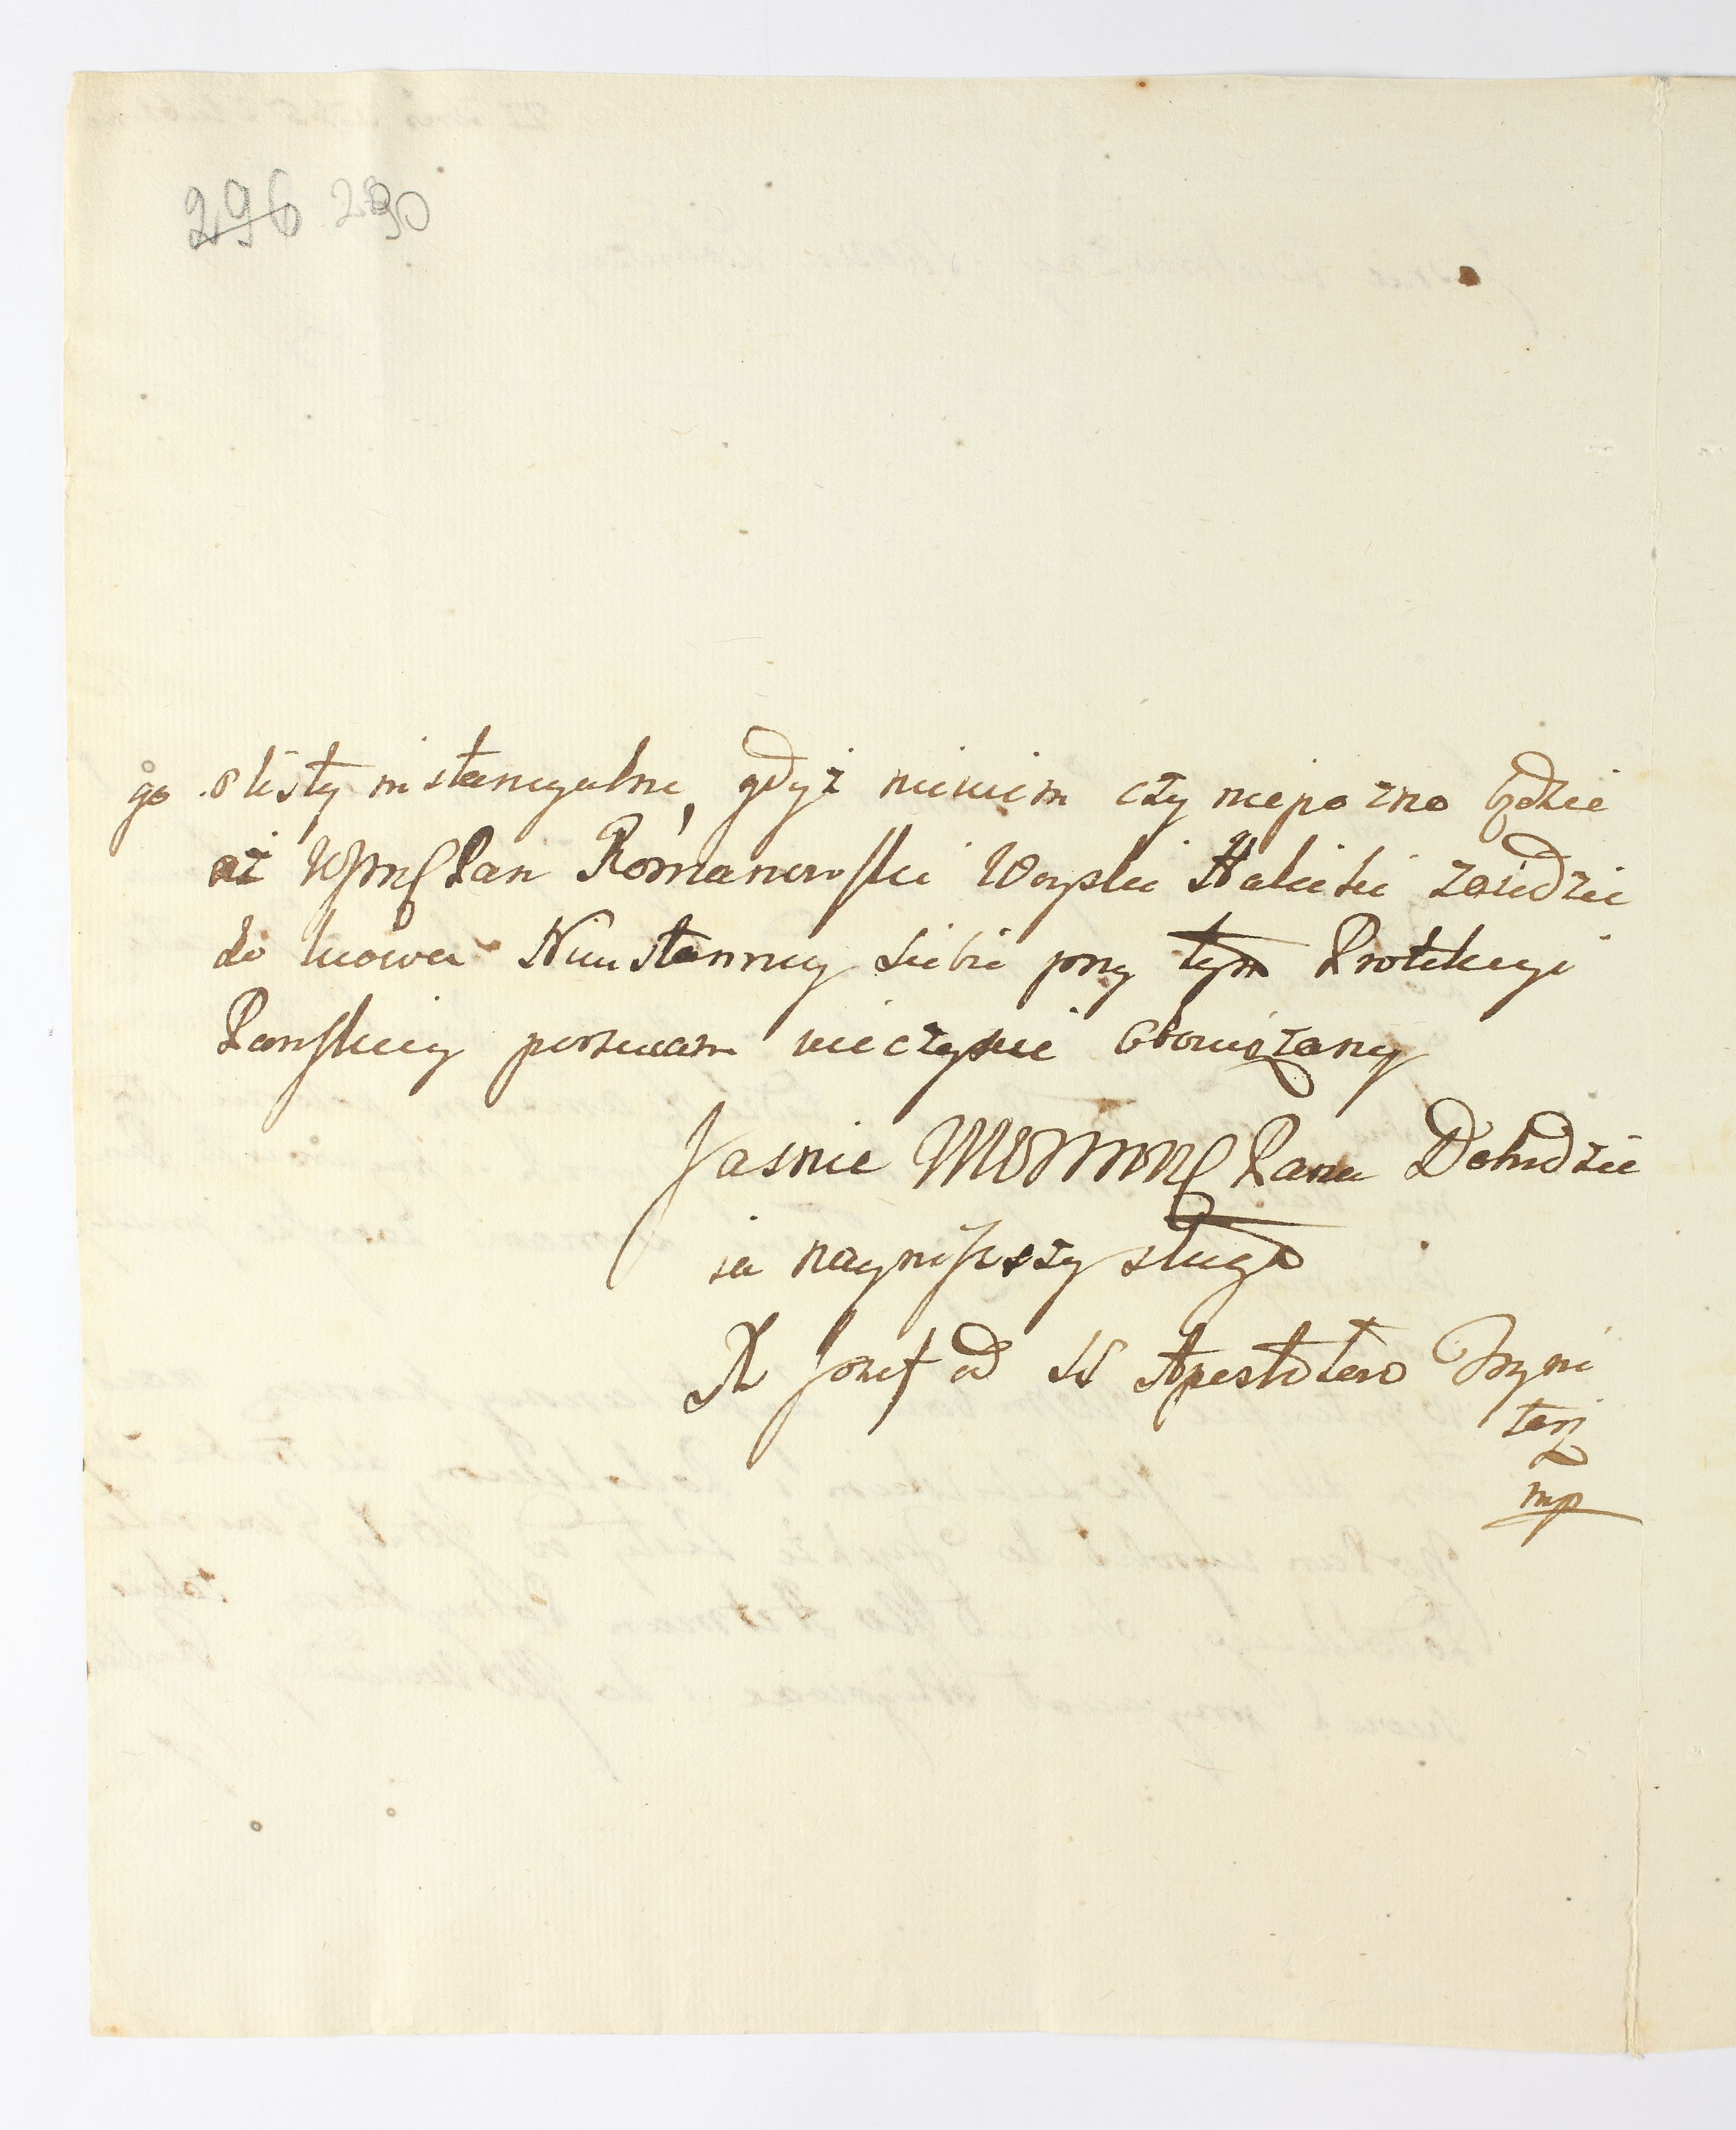 296 290
go o listy instancyalne, gdyż niewiem czy niepozno będzie
aż WJmć Pan Romanowski Woyski Halicki zaiedzie
do Lwowa Nieustanney siebie przy tym Protekcyi
Panskiey porucam wieczyscie obowiązany
Jasnie WW Pana Dobrodzie
ia nayniższy sługa
X Jozef od SS Apostołow Tryni
tarz
mp